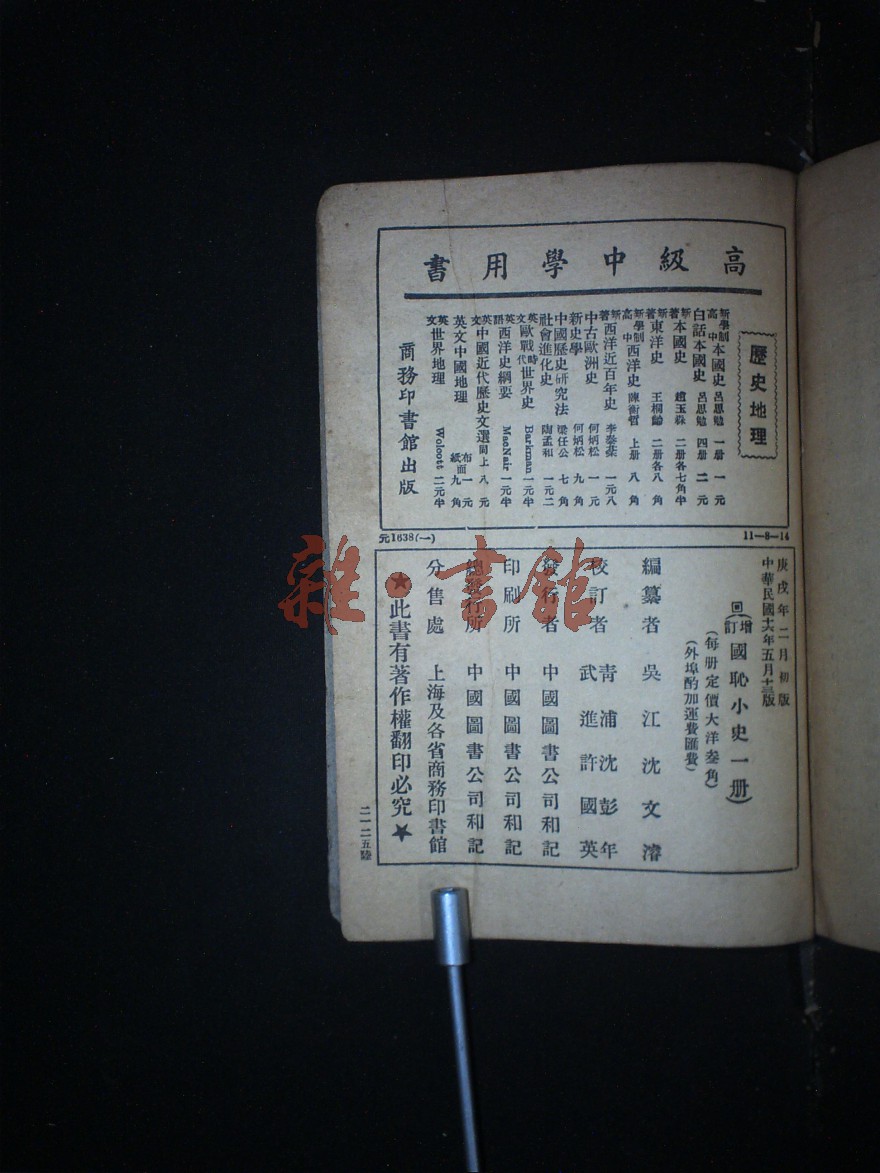 高級中學用書
歷史地理
新學制高中本國史 呂思勉 一册 一元
白話本國史 呂思勉 四册 二元
新著本國史 趙玉森 二册各七角半
新著東洋史 王桐齡 二册各八角
新學制高中西洋史 陳衡哲 上册 八角
新著西洋近百年史 李泰棻 一元八
中古歐洲史 何炳松 一元
新史學 何炳松 九角
中國歷史研究法 梁任公 七角
社會進化史 陶孟和 一元二
英文歐戰時代世界史 Barkman 一元半
英語西洋史綱要 MacNair 一元半
英文中國近代歷史文選 同上 八元
英文中國地理 布面一元 紙面九角
英文世界地理 Wolcott 二元半
商務印書館出版
元1638(一)
11—8—14
庚戌年二月初版
中華民國十六年五月十三版
回(增訂國恥小史一册)
(每册定價大洋叁角)
(外埠酌加運費匯費)
編纂者 吳江沈文濬
校訂者 青浦沈彭年
武進許國英
發行者 中國圖書公司和記
印刷所 中國圖書公司和記
總發行所 中國圖書公司和記
分售處 上海及各省商務印書館
★此書有著作權翻印必究★
二一二五陸
雜·書館